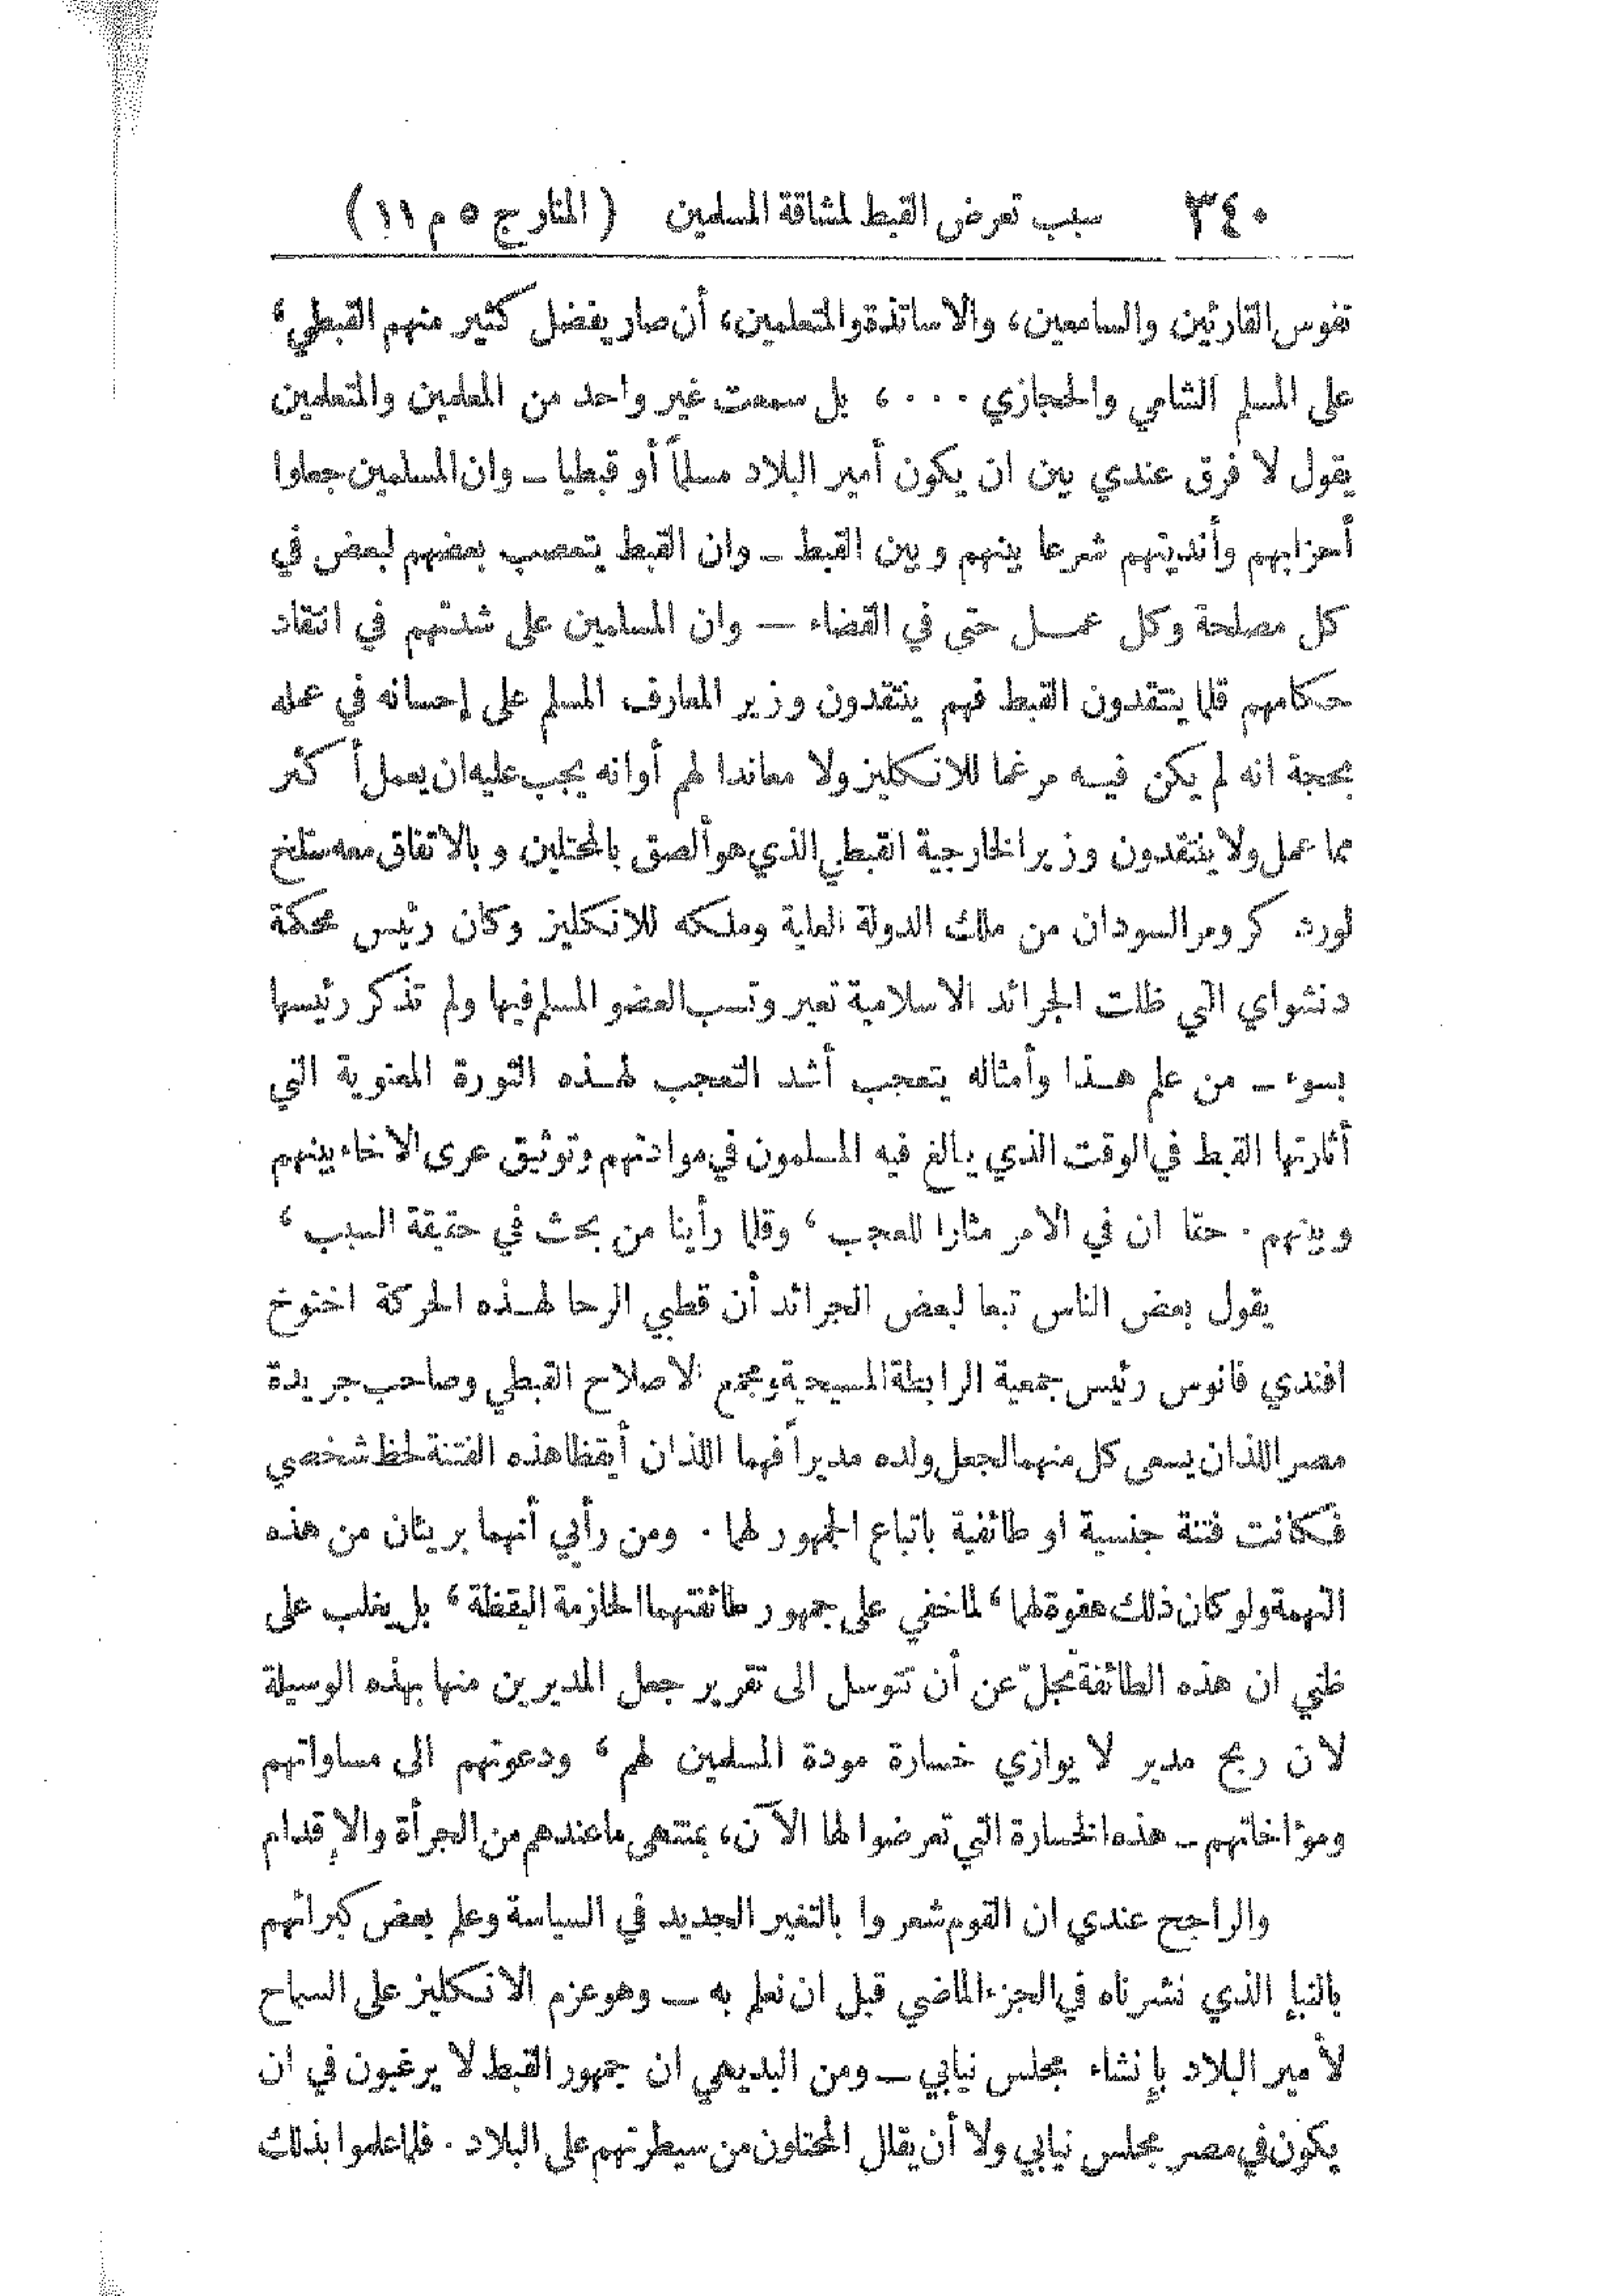 ٣٤٠ سبب تعرض القبط لمشاقة المسلمين (المنارج ٥ م ١١)
نفوس القارئين والسامعين، والاساتذة والمتعلمين، أن صار يفضل كثير منهم القبطي،
على المسلم الشامي والحجازي . . . ، بل سمعت غير واحد من المعلمين والمتعلمين
يقول لا فرق عندي بين ان يكون أمير البلاد مسلماً أو قبطيا ـ وان المسلمين جعلوا
أحزابهم وأنديتهم شرعا بينهم وبين القبط ـ وان القبط يتعصب بعضهم لبعض في
كل مصلحة وكل عمل حتى في القضاء — وان المسلمين على شدتهم في انتقاد
حكامهم قلما ينتقدون القبط فهم ينتقدون وزير المعارف المسلم على إحسانه في عمله
بحجة انه لم يكن فيه مرغما للانكليز ولا معاندا لهم أوانه يجب عليه ان يعمل أكثر
مما عمل ولا ينتقدون وزير الخارجية القبطي الذي هو ألصق بالمحتلين وبالاتفاق معه سلخ
لورد كرومر السودان من ملك الدولة العلية وملكه للانكليز وكان رئيس محكمة
دنشواي التي ظلت الجرائد الاسلامية تعير وتسب العضو المسلم فيها ولم تذكر رئيسها
بسوء ـ من علم هذا وأمثاله يتعجب أشد التعجب لهذه الثورة المعنوية التي
أثارتها القبط في الوقت الذي يبالغ فيه المسلمون في موادتهم وتوثيق عرى الاخاء بينهم
وبينهم . حقا ان في الامر مثارا للعجب ، وقلما رأينا من بحث في حقيقة السبب ،
يقول بعض الناس تبعا لبعض الجرائد أن قطبي الرحا لهذه الحركة اخنوخ
افندي فانوس رئيس جمعية الرابطة المسيحية ومجمع الاصلاح القبطي وصاحب جريدة
مصر اللذان يسعى كل منهما لجعل ولده مديراً فهما اللذان أيقظا هذه الفتنة لحظ شخصي
فكانت فتنة جنسية او طائفية باتباع الجمهور لهما . ومن رأيي أنهما بريئان من هذه
التهمة ولو كان ذلك هفوة لهما ، لما خفي على جمهور طائفتهما الحازمة اليقظة ، بل يغلب على
ظني ان هذه الطائفة تجلّ عن أن تتوسل الى تقرير جعل المديرين منها بهذه الوسيلة
لان ربح مدير لا يوازي خسارة مودة المسلمين لهم ، ودعوتهم الى مساواتهم
ومؤاخاتهم ـ هذه الخسارة التي تعرضوا لها الآن، بمنتهى ما عندهم من الجرأة والإقدام
والراجح عندي ان القوم شعروا بالتغير الجديد في السياسة وعلم بعض كبرائهم
بالنبإ الذي نشرناه في الجزء الماضي قبل ان نعلم به ـ وهو عزم الانكليز على السماح
لأمير البلاد بإنشاء مجلس نيابي ـ ومن البديهي ان جمهور القبط لا يرغبون في ان
يكون في مصر مجلس نيابي ولا أن يقلل المحتلون من سيطرتهم على البلاد . فلما علموا بذلك